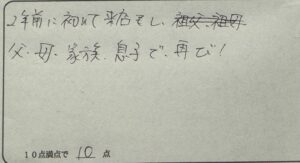 2年前に初めて来店をし、祖父、祖母
父、母、家族、息子で、再び!
10点満点で 10 点